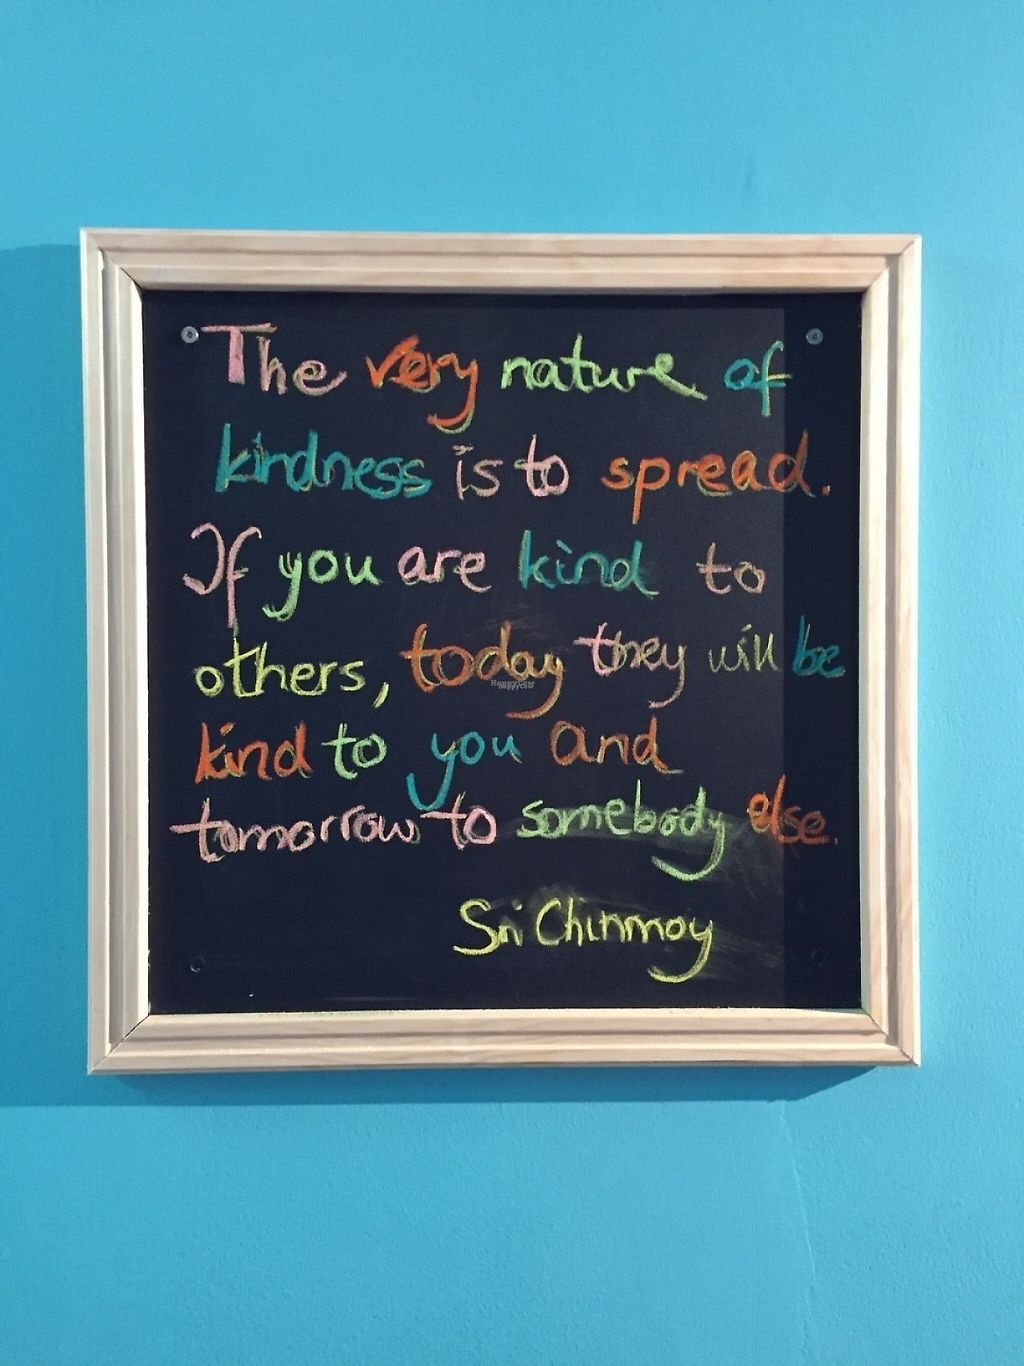 The very nature of
kindness is to spread.
If you are kind to
others, today they will be
kind to you and
tomorrow to somebody else.
Sri Chinmoy
HappyCow
HappyCow